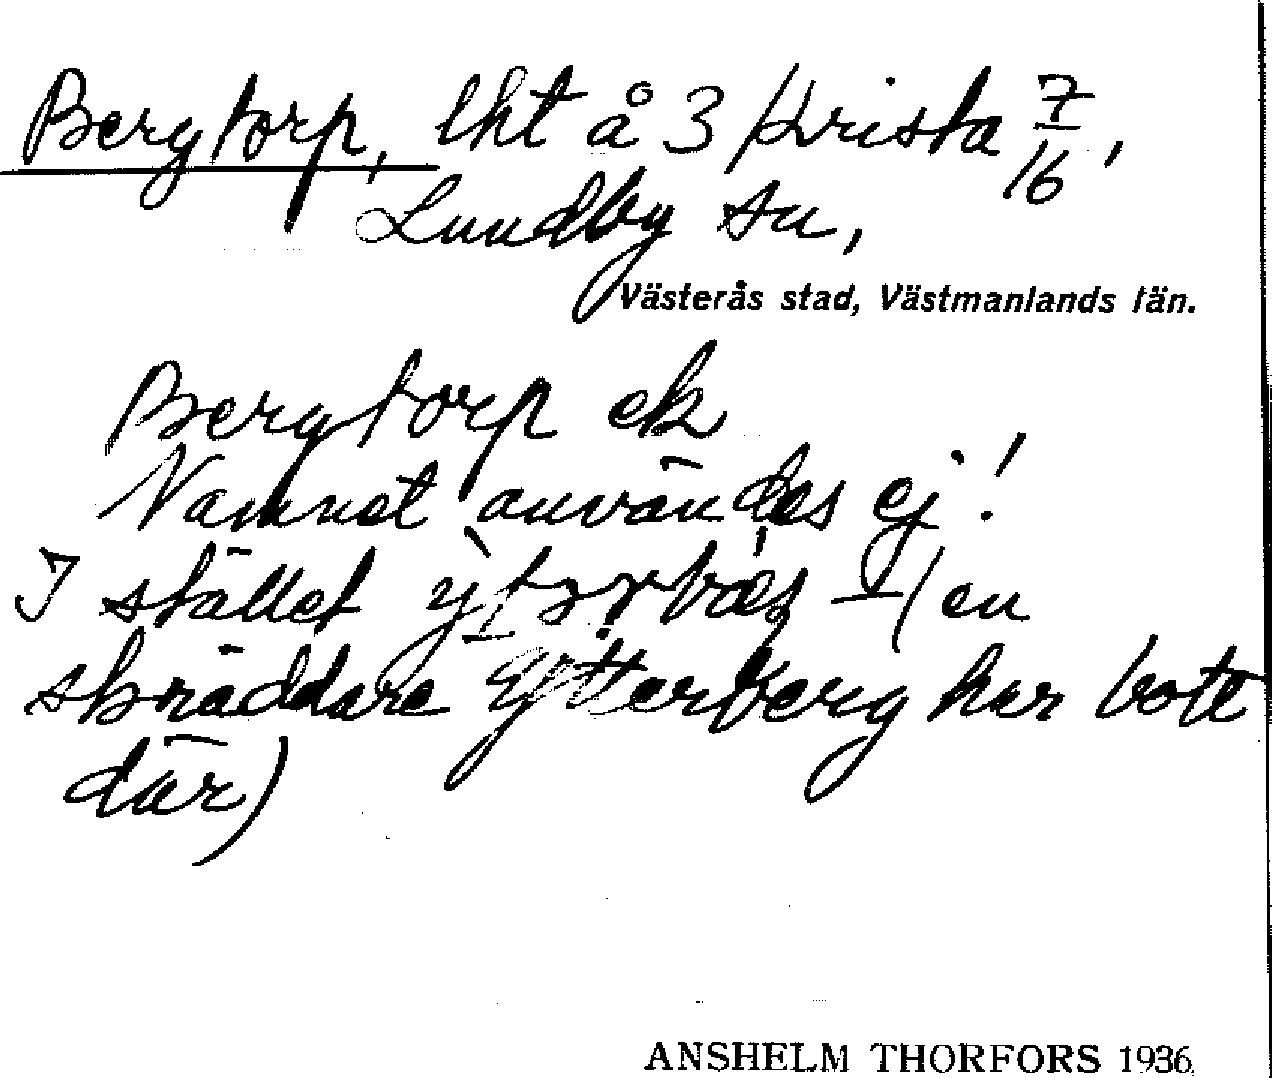 Bergtorp, lht å 3 Krista 7/16,
Lundby sn,
Västerås stad, Västmanlands län.
Bergtorp ek
Namnet användes ej!
I stället (en
skräddare Ytterberg har bott
där)
ANSHELM THORFORS 1936.